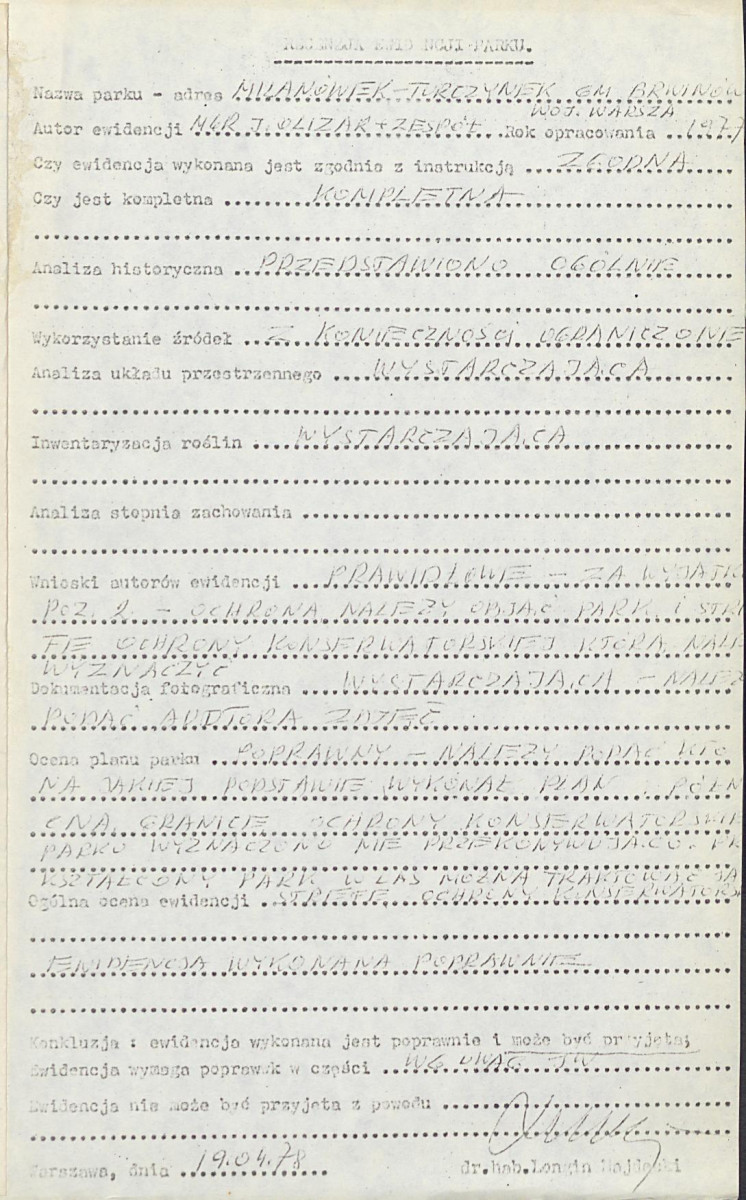 RECENZJA EWIDENCJI PARKU.
Nazwa parku - adres MILANÓWEK - TURCZYNEK GM. BRWINÓW
WOJ. WARSZA
Autor ewidencji MGR J. OLIZAR + ZESPÓŁ Rok opracowania 1977
Czy ewidencja wykonana jest zgodnie z instrukcją ZGODNA
Czy jest kompletna KOMPLETNA
Analiza historyczna PRZEDSTAWIONO OGÓLNIE
Wykorzystanie źródeł Z KONIECZNOŚCI OGRANICZONE
Analiza układu przestrzennego WYSTARCZAJĄCA
Inwentaryzacja roślin WYSTARCZAJĄCA
Analiza stopnia zachowania
Wnioski autorów ewidencji PRAWIDŁOWE - ZA WYJĄTK
POZ. 2. - OCHRONĄ NALEŻY OBJĄĆ PARK I STRE
FIE OCHRONY KONSERWATORSKIEJ KTÓRĄ NALE
WYZNACZYĆ
Dokumentacja fotograficzna WYSTARCZAJĄCA - NALEŻ
PODAĆ AUDTORA ZDJĘĆ
Ocena planu parku POPRAWNY - NALEŻY PODAĆ KTO
NA JAKIEJ PODSTAWIE WYKONAŁ PLAN. PÓŁN
CNĄ GRANICĘ OCHRONY KONSERWATORSKIE
PARKU WYZNACZONO NIE PRZEKONYWUJĄCO. PR
KSZTAŁCONY PARK W LAS MOŻNA TRAKTOWAĆ JA
Ogólna ocena ewidencji STREFĘ OCHRONY KONSERWATORS
EWIDENCJA WYKONANA POPRAWNIE
Konkluzja : ewidencja wykonana jest poprawnie i może być przyjęta;
Ewidencja wymaga poprawek w części WG UWAG JW
Ewidencja nie może być przyjęta z powodu
Warszawa, dnia 19.04.78
dr.hab.Longin Majdecki